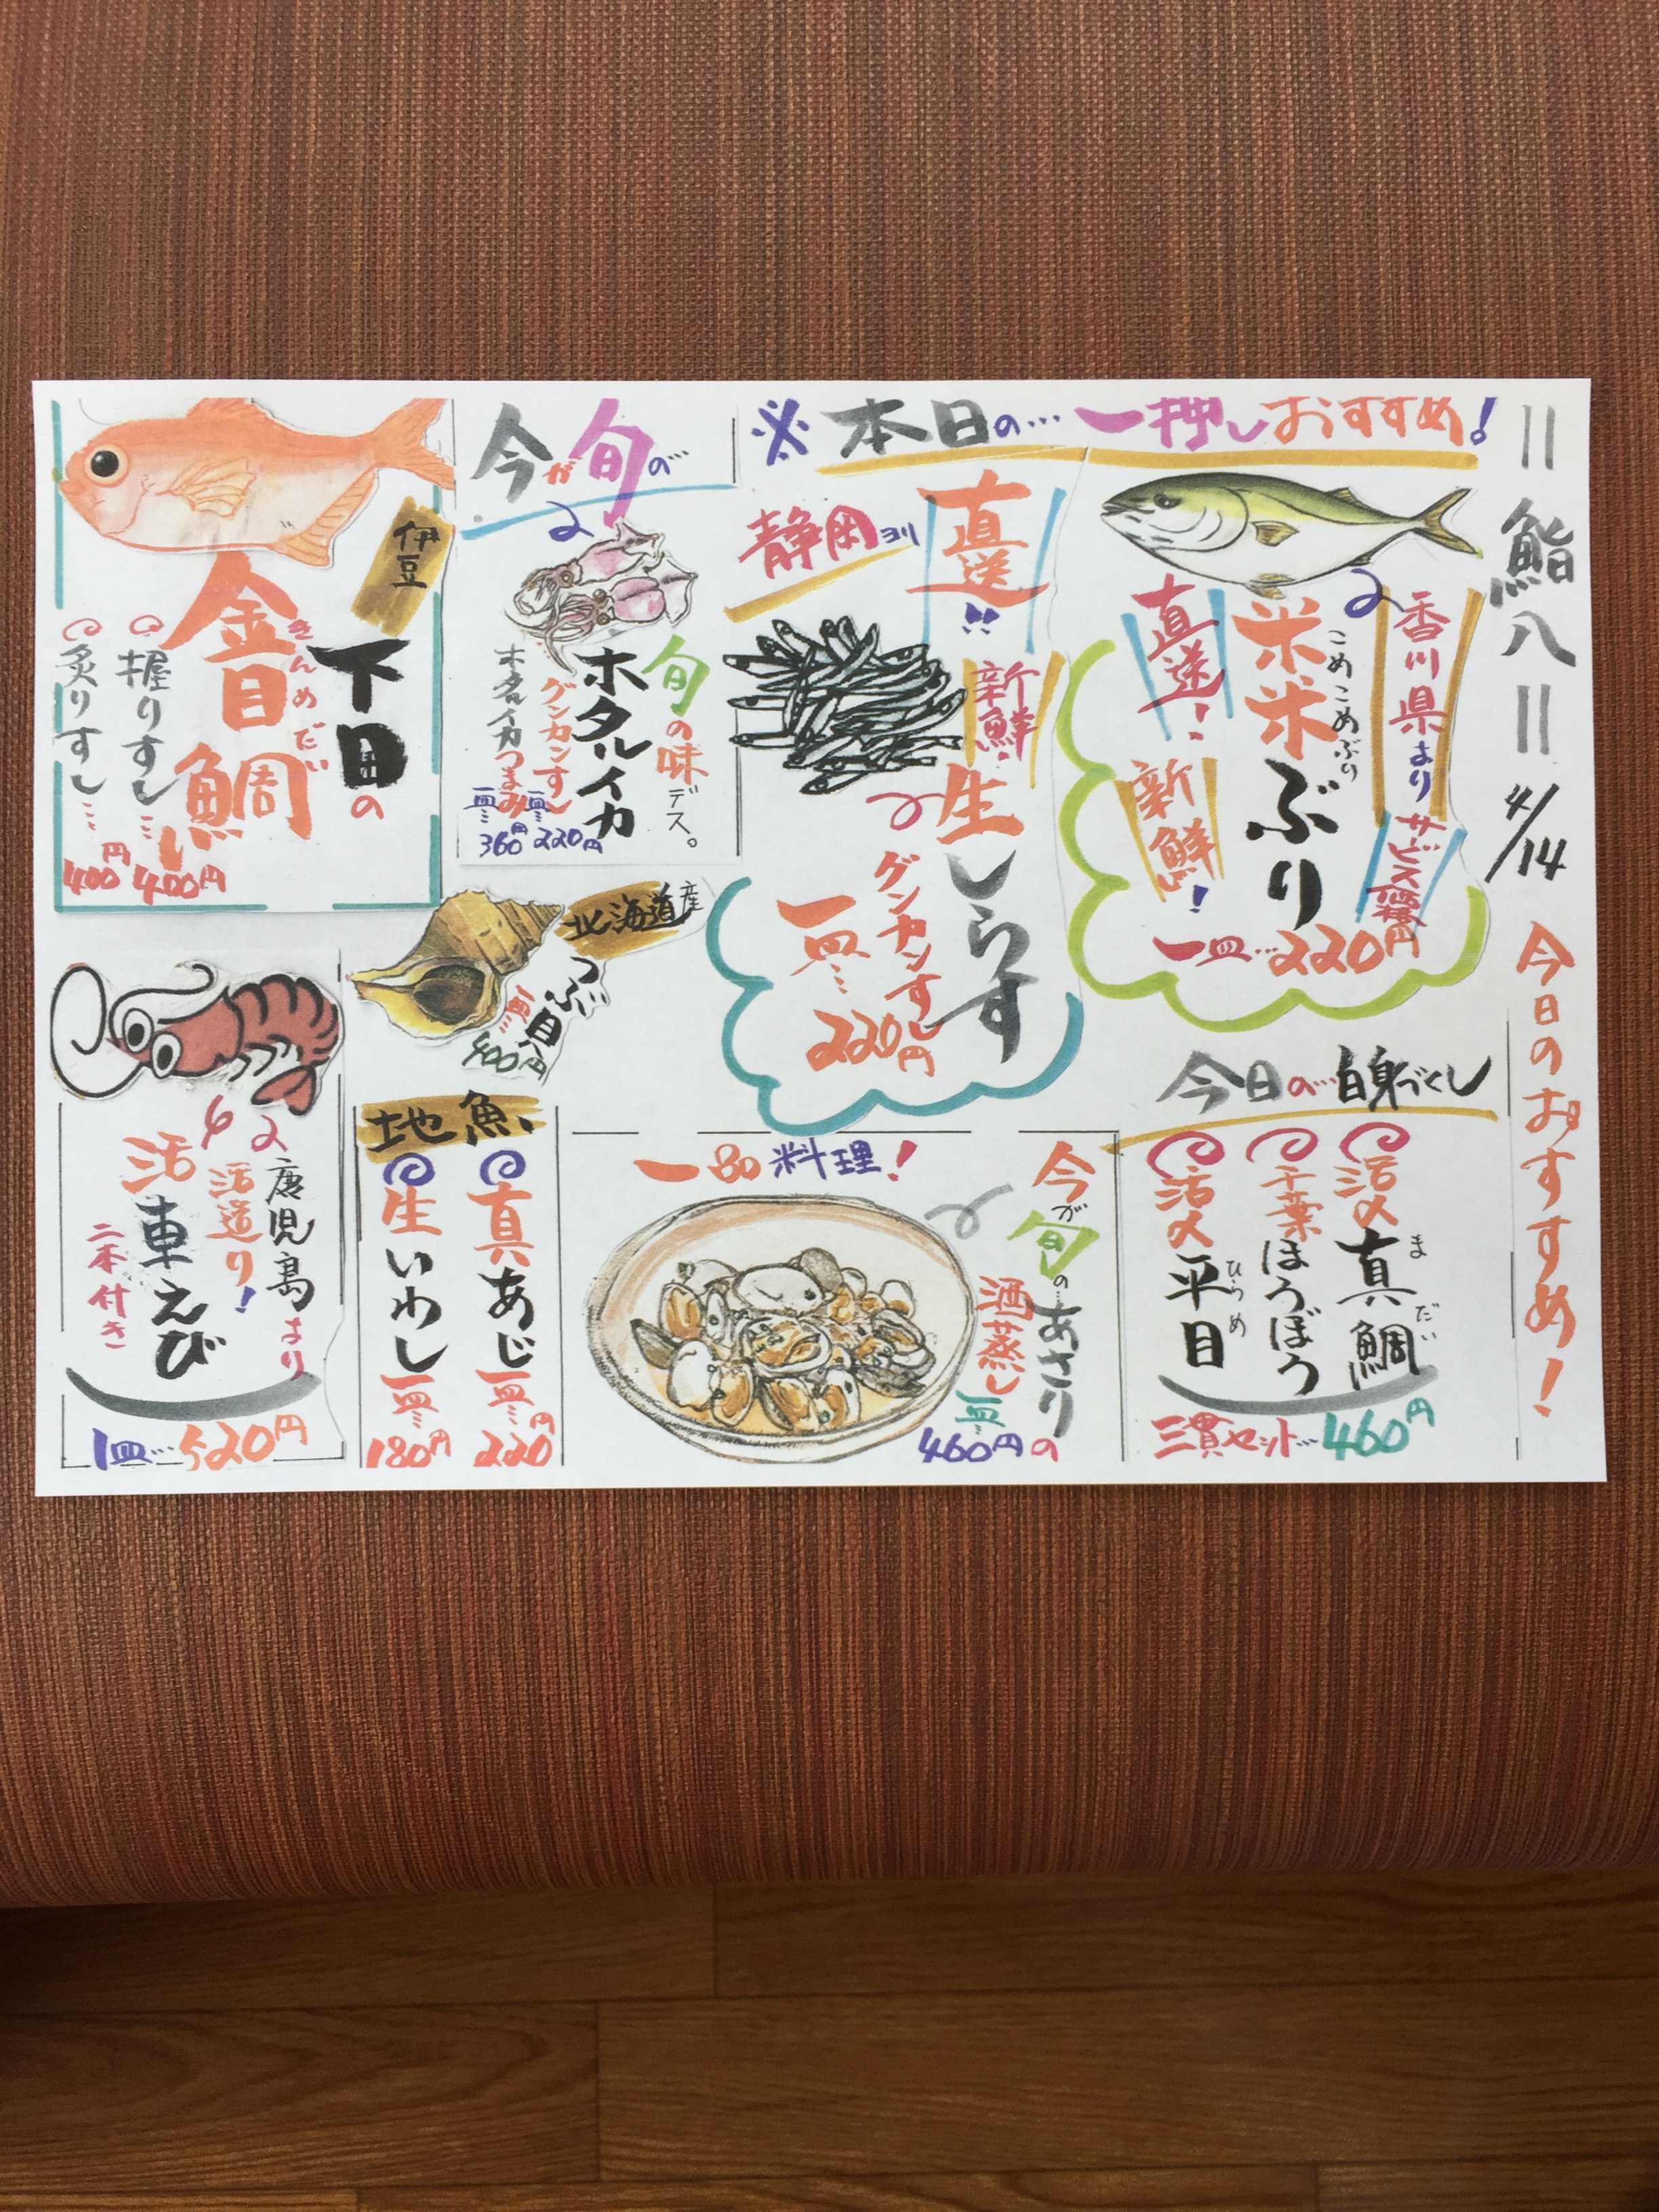 = 鮨八 =
4/14
今日のおすすめ!
※本日の…一押しおすすめ!
香川県より
直送!
新鮮!
こめこめぶり
米米ぶり
サービス価格
一皿…220円
静岡ヨリ
直送!!
新鮮!
生しらす
グンカンすし
一皿…220円
今が旬の…
旬の味デス。
ホタルイカ
グンカンすし
一皿…220円
ホタルイカつまみ
一皿…360円
伊豆
下田の
きんめだい
金目鯛
握りすし…400円
炙りすし…400円
北海道産
つぶ貝
一皿…400円
今日の…白身づくし
活〆真鯛
まだい
千葉ほうぼう
活〆平目
ひらめ
三貫セット…460円
一品料理!
今が旬の…あさり
酒蒸し
一皿…460円の
地魚
真あじ
一皿…220円
生いわし
一皿…180円
鹿児島より
活造り!
活車えび
二本付き
1皿…520円